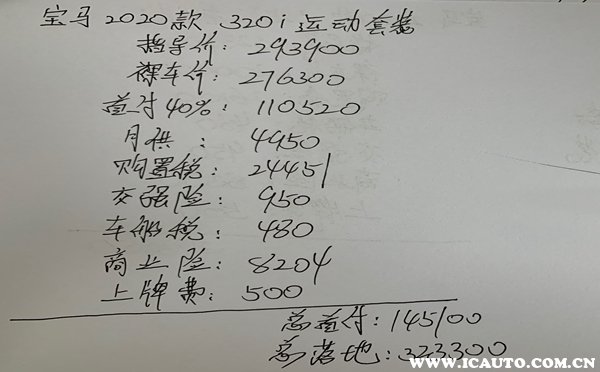 宝马2020款 320i运动套装
指导价: 293900
裸车价: 276300
首付40%: 110520
月供: 4950
购置税: 24451
交强险: 950
车船税: 480
商业险: 8204
上牌费: 500
总首付: 145100
总落地: 323300
爱卡汽车
WWW.ICAUTO.COM.CN